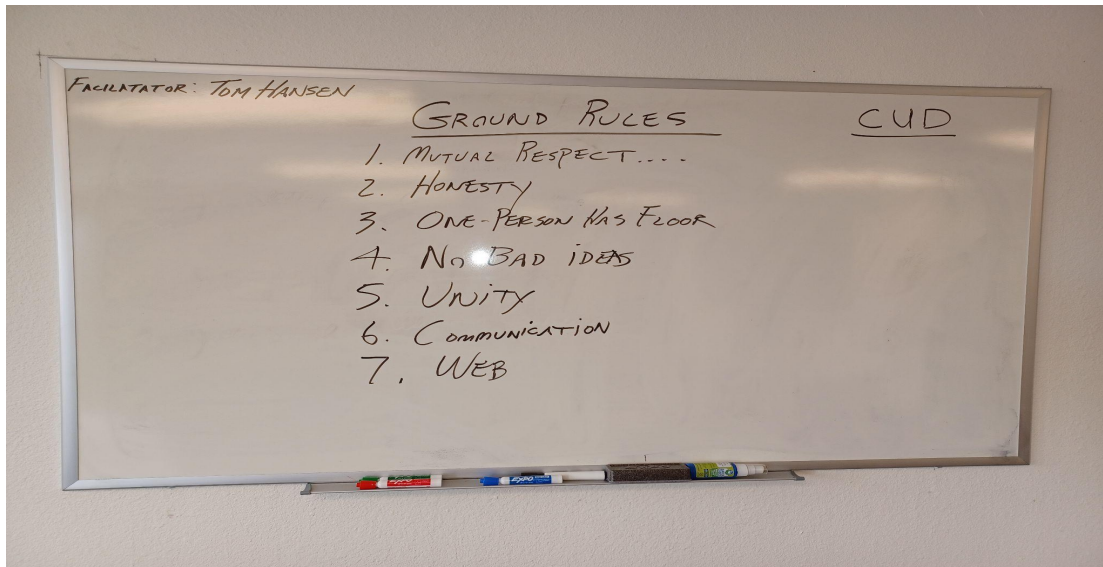 FACILATATOR: TOM HANSEN
GROUND RULES
CUD
1. MUTUAL RESPECT....
2. HONESTY
3. ONE-PERSON HAS FLOOR
4. NO BAD iDEAS
5. UNiTY
6. COMMUNiCATiON
7. WEB
EXPO